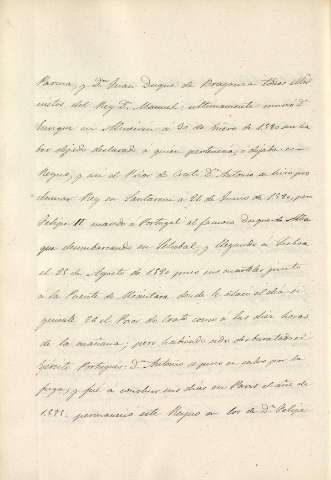 Parma, y Dn. Juan Duque de Braganza todos
nietos del Rey Dn. Manuel: ultimamente murió Dn.
Enrique en Almeirin a 31 de Enero de 1580 sin ha
ber dejado declarado a quien pertenecia, o dejaba su
Reyno, y asi el Prior de Crato Dn. Antonio se hizo pro
clamar Rey en Santarem a 24 de Junio de 1580, pero
Felipe II mandó a Portugal el famoso Duque de Alba
que desembarcando en Setubal, y llegando a Lisboa
el 25 de Agosto de 1580 puso sus cuarteles junto
á la Puente de Alcantara donde le atacó el dia si
guiente 26 el Prior de Crato como a las diez horas
de la mañana; pero habiendo sido desbaratado el
Ejército Portugues: Dn. Antonio se puso en salvo por la
fuga, y fué a concluir sus dias en Paris el año de
1595. permaneció este Reyno en los de Dn. Felipe